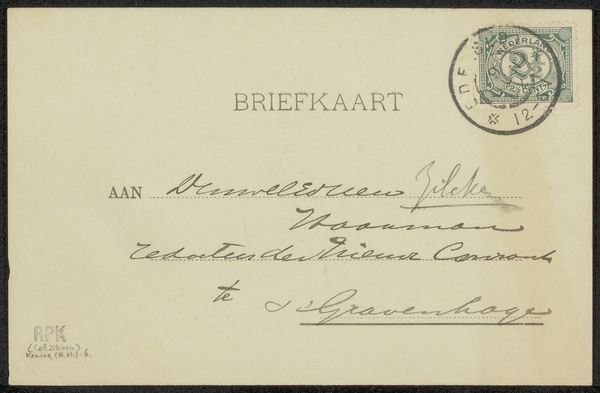 NEDERLAND
2½
(2½ CENT)
EDE
12-
BRIEFKAART
AAN Zilcken
redacteur der Nieuwe Courant
te
's Gravenhage
RPK
(Col. Zilcken)
Koning (A.H.): 6.